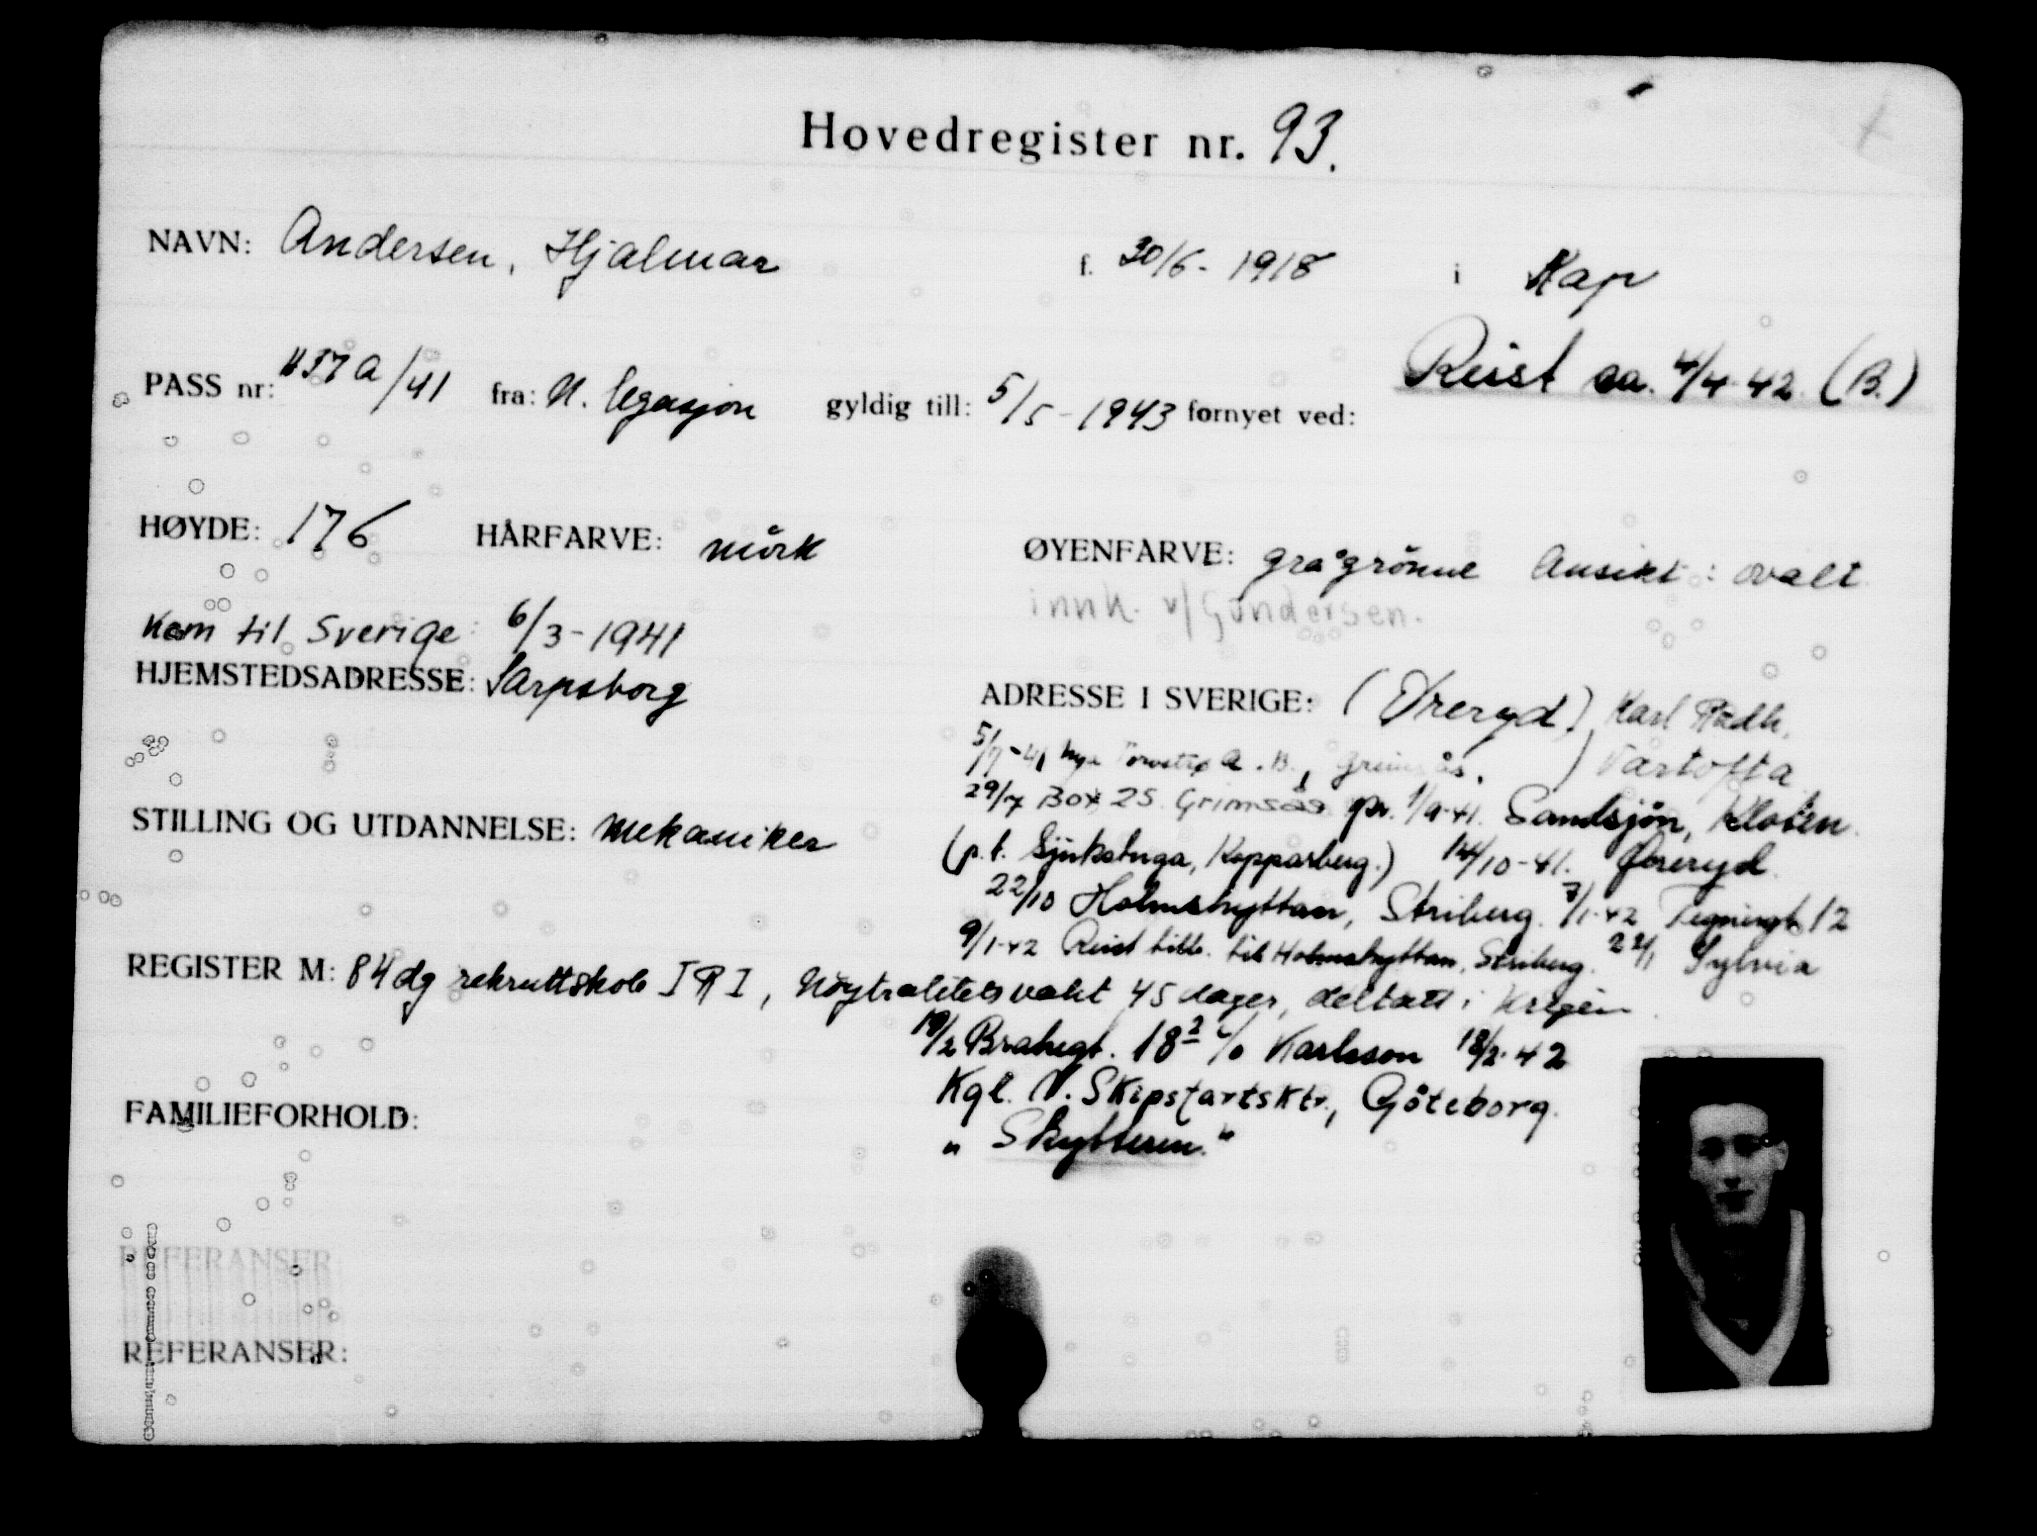 Hovedregister nr. 93.
NAVN: Andersen, Hjalmar f. 30/6 - 1918 i Kap
Reist ca. 4/4-42 (B.)
PASS nr: 1137 a/41 fra: N. legasjon gyldig till: 5/5 - 1943 fornyet ved:
HØYDE: 176 HÅRFARVE: mörk ØYENFARVE: grågrönne Ansikt: ovalt
innk. v/Gundersen.
Kom til Sverige: 6/3 - 1941
HJEMSTEDSADRESSE: Sarpsborg
ADRESSE I SVERIGE: (Öreryd) Karl
5/7-41 A.B., ) Vartofta
29/7 Box 25 Grimsås pr. 1/9-41. Sandsjön, Kloten.
STILLING OG UTDANNELSE: Mekaniker
(p.t. Sjukstuga, Kopparberg.) 14/10-41. Öreryd.
22/10 Holmshyttan, Striberg. 7/1-42 12
9/1-42 Reist tilb. til Holmshyttan, Striberg. 22/1 Sylvia
REGISTER M: 84 dg rekruttskole I R I, Nöytralitetsvakt 45 dager, deltatt i krigen
18² c/o Karlsson 18/2-42
Kgl. N. Skipsfartsktr., Göteborg.
FAMILIEFORHOLD:
"Skytteren."
REFERANSER
REFERANSER: